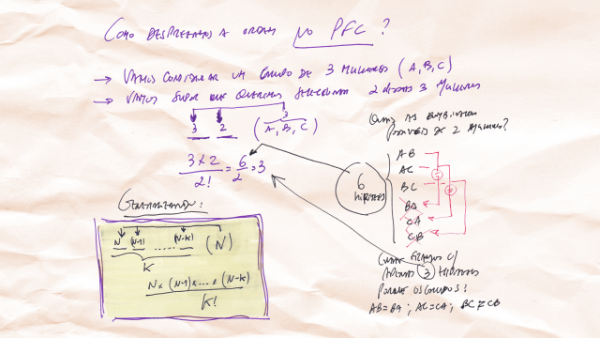 COMO DESPREZAMOS A ORDEM NO PFC?
→ VAMOS CONSIDERAR UM GRUPO DE 3 MULHERES (A, B, C)
→ VAMOS SUPOR QUE QUEREMOS SELECIONAR 2 DESTAS 3 MULHERES
3
3 2 (A, B, C)
3 x 2 / 2! = 6 / 2 = 3
QUAIS AS
POSSÍVEIS DE 2 MULHERES?
6
HIPÓTESES
AB
AC
BC
BA
CA
CB
GENERALIZANDO:
N (N-1) ..... (N-K) (N)
K
N x (N-1) x ... x (N-K)
K!
C/
APENAS 3 HIPÓTESES
PORQUE OS GRUPOS:
AB = BA ; AC = CA ; BC = CB